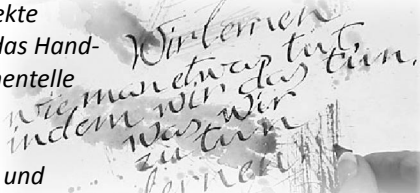 ekte
das Hand-
nentelle
und
Wir lernen
wie man etwas tut,
indem wir das tun,
was wir
zu tun
lernen